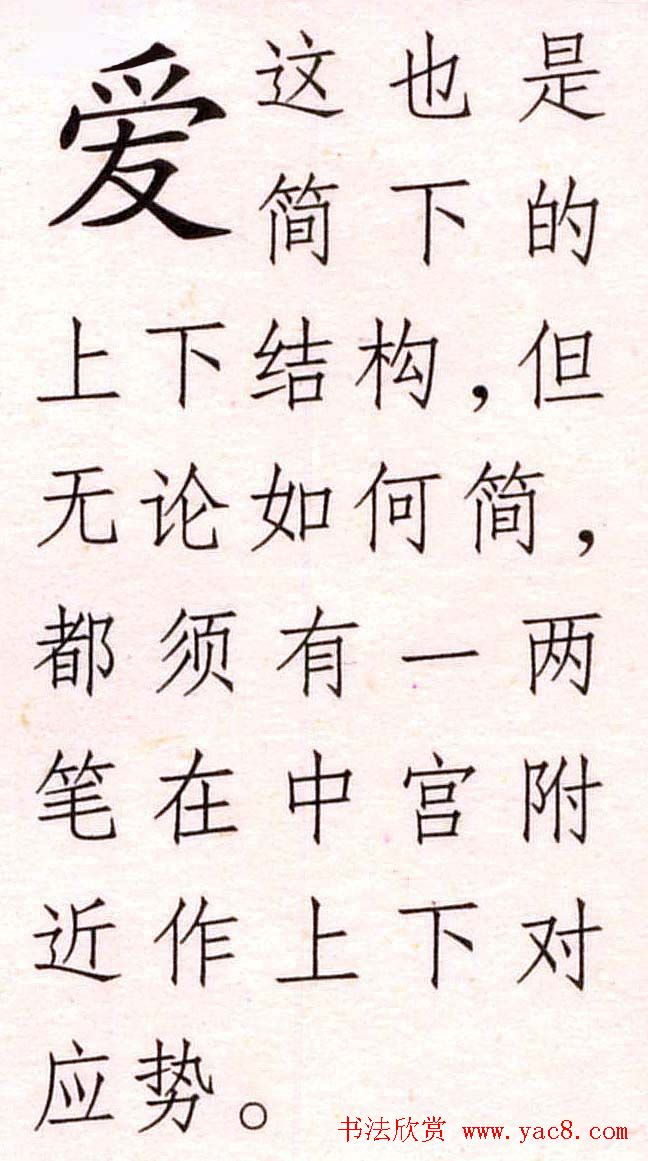 爱
这也是
简下的
上下结构，但
无论如何简，
都须有一两
笔在中宫附
近作上下对
应势。
书法欣赏 www.yac8.com